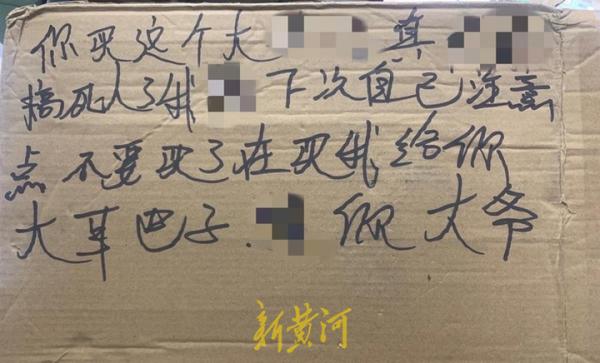 你买这个大 真
搞死人了我 下次自己注意
点 不要买了在买我给你
大耳巴子. 你大爷
新黄河